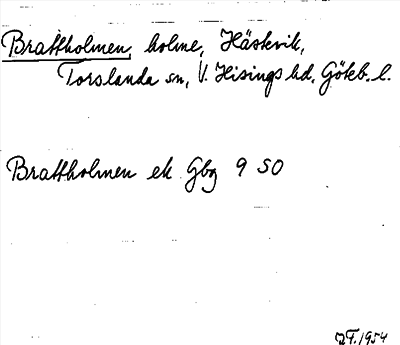 Brattholmen, holme, Hästevik,
Torslanda sn, V. Hisings hd, Göteb. l.
Brattholmen ek Gbg 9 SO
1954